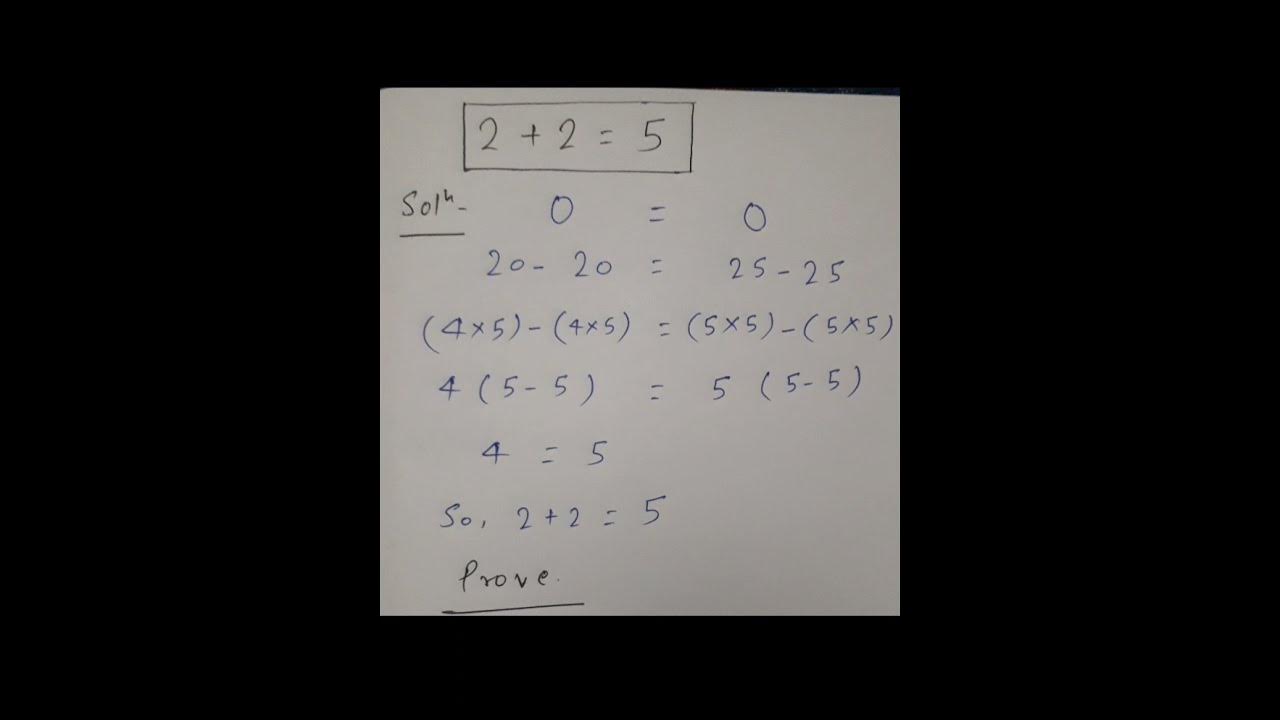 2 + 2 = 5
Solⁿ- 0 = 0
20 - 20 = 25 - 25
(4×5) - (4×5) = (5×5) - (5×5)
4 (5 - 5) = 5 (5 - 5)
4 = 5
So, 2 + 2 = 5
Prove.